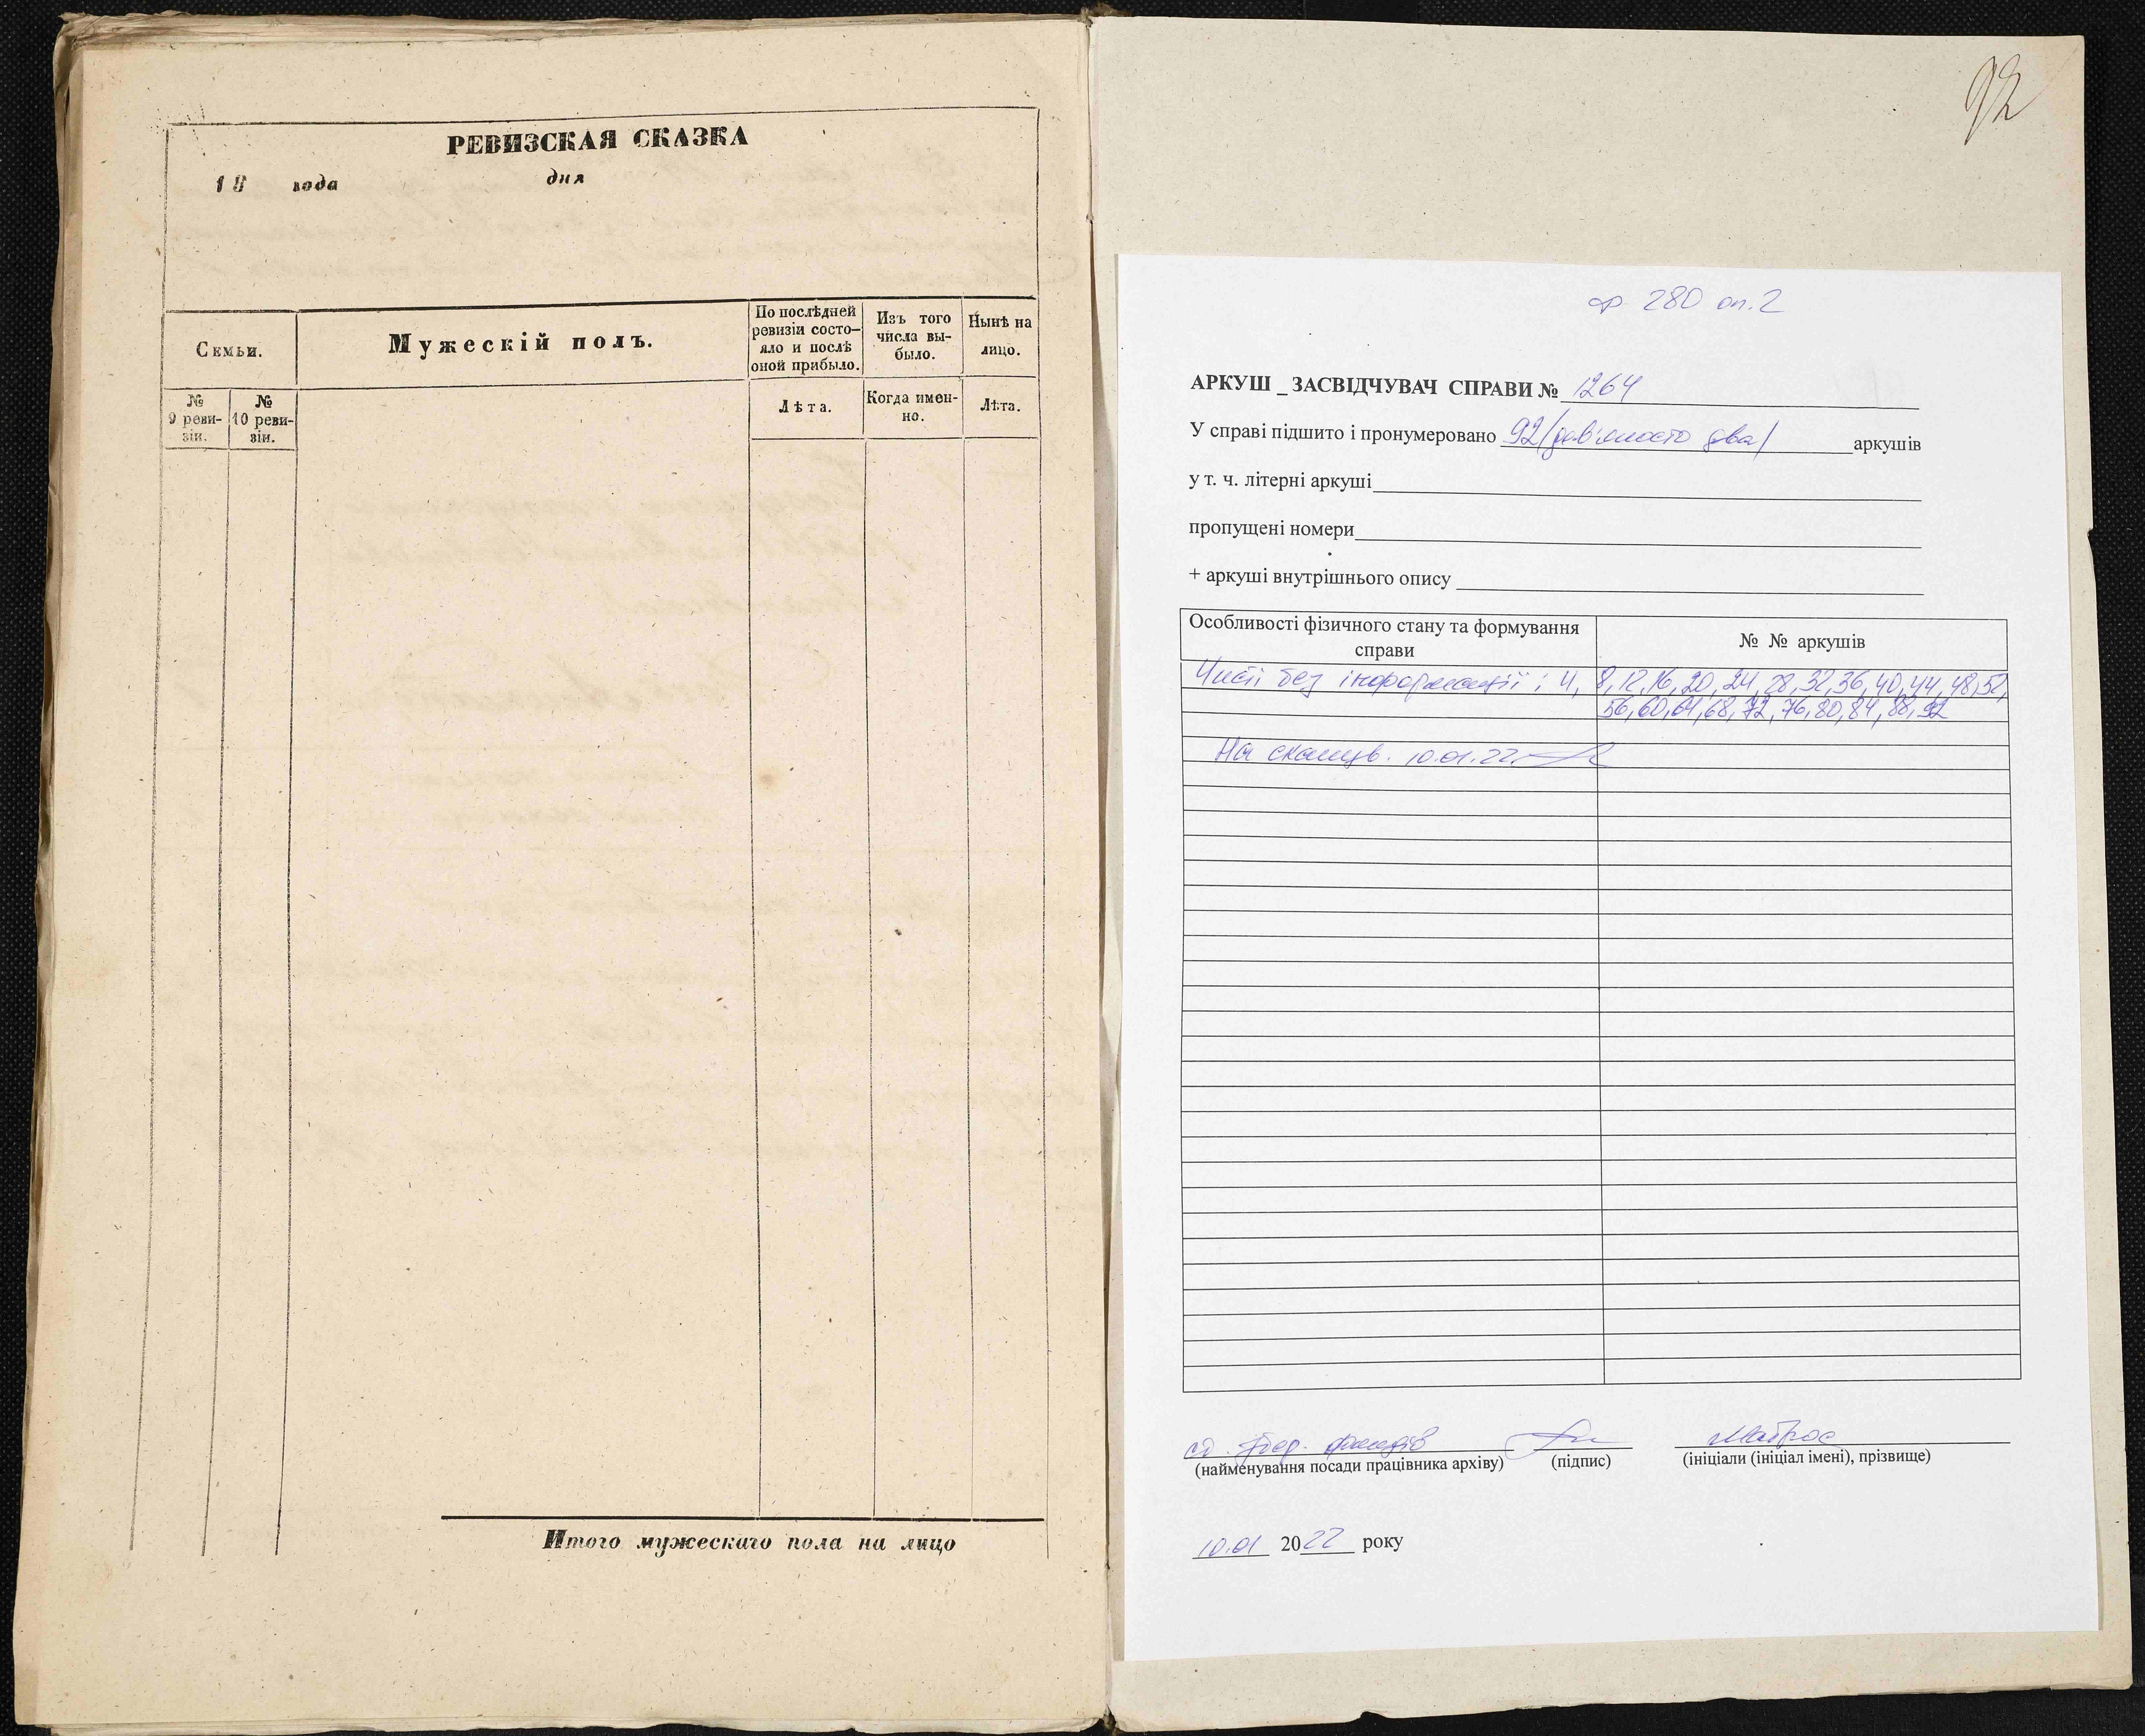 РЕВИЗСКАЯ СКАЗКА
18 года дня
Семьи.
Мужескій полъ.
По послѣдней
ревизіи состо-
яло и послѣ
оной прибыло.
Изъ того
числа вы-
было.
Нынѣ на
лицо.
№
9 реви-
зіи.
№
10 реви-
зіи.
Лѣта.
Когда имен-
но.
Лѣта.
Итого мужескаго пола на лицо
92
ф 280 оп. 2
АРКУШ _ ЗАСВІДЧУВАЧ СПРАВИ № 1264
У справі підшито і пронумеровано 92/дев'яносто два/ аркушів
у т. ч. літерні аркуші
пропущені номери
+ аркуші внутрішнього опису
Особливості фізичного стану та формування
справи
№ № аркушів
Чисті без інформації: 4, 8, 12, 16, 20, 24, 28, 32, 36, 40, 44, 48, 52,
56, 60, 64, 68, 72, 76, 80, 84, 88, 92
На сканув. 10.01.22.
ст. збер. фондів Матрос
(найменування посади працівника архіву) (підпис) (ініціали (ініціал імені), прізвище)
10.01 2022 року